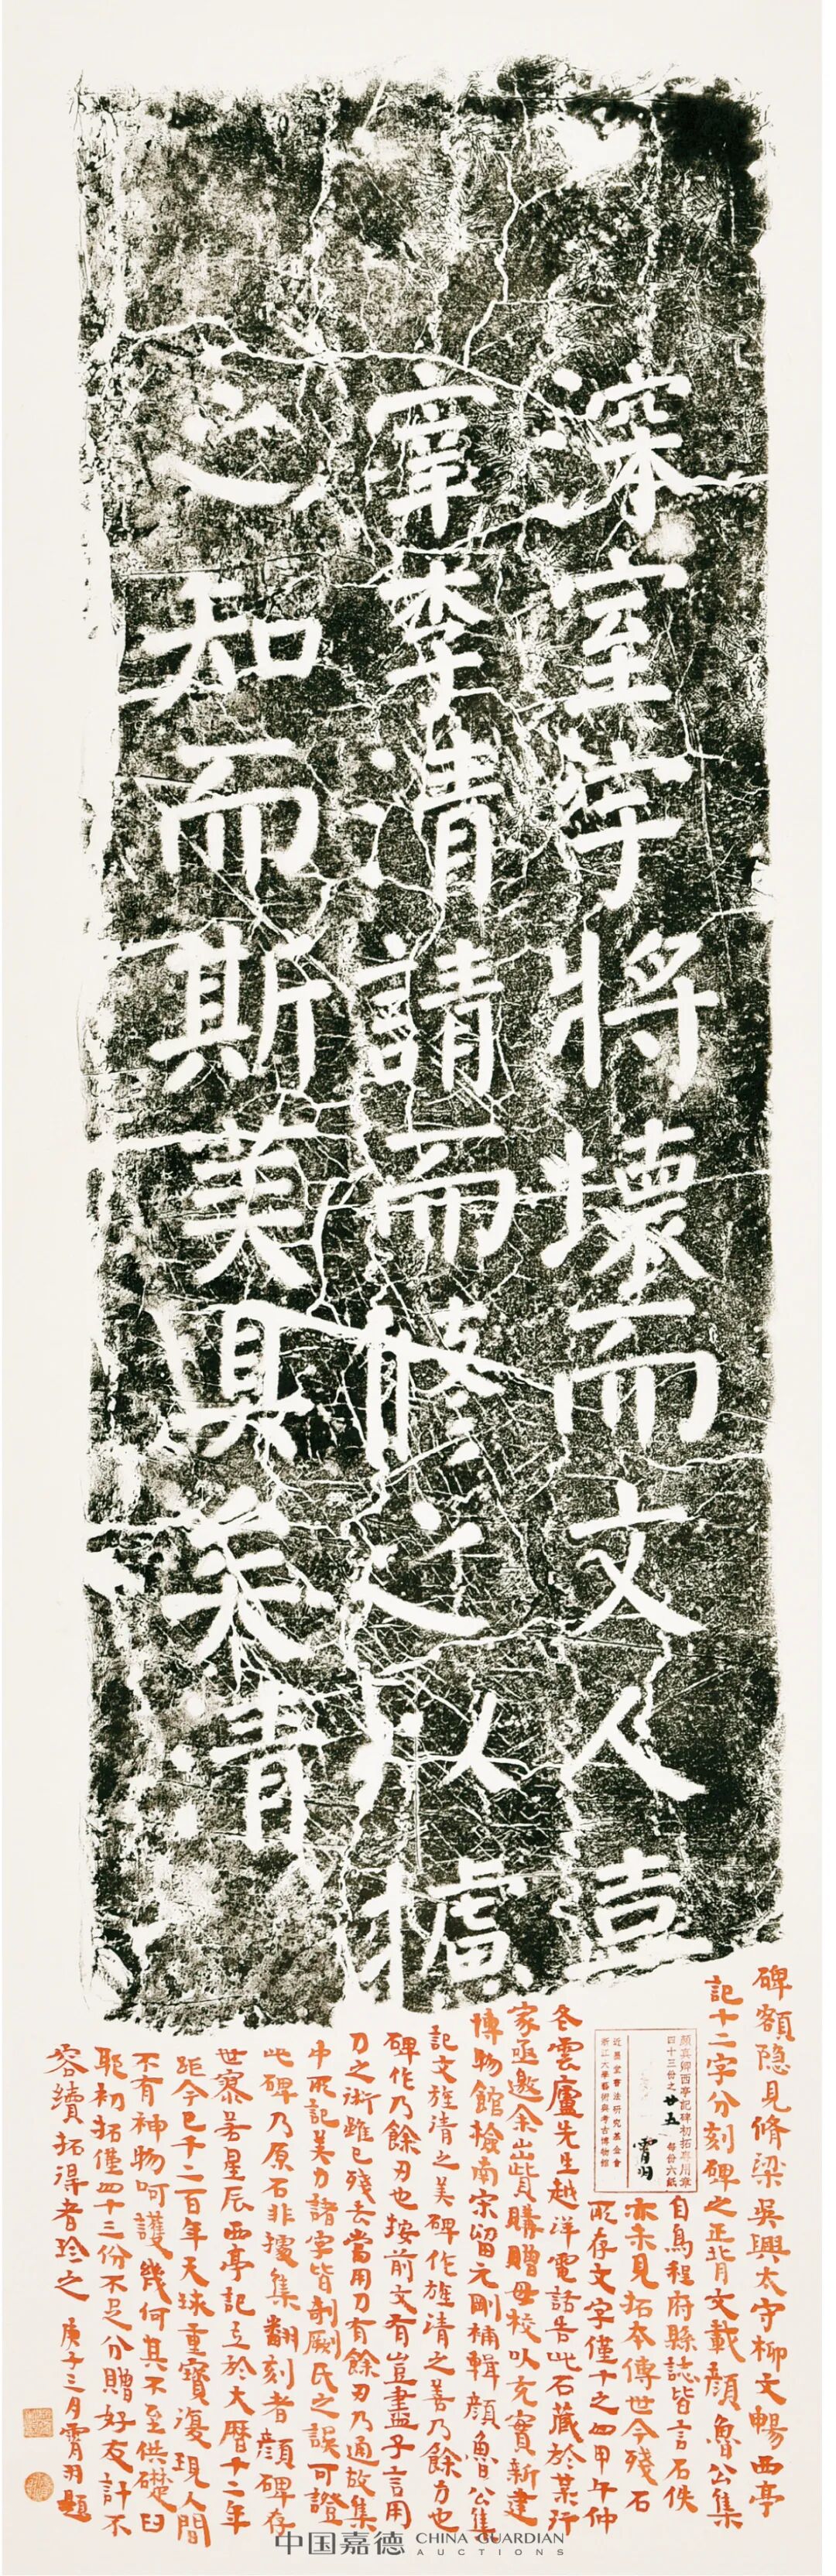 深室宇將壞而文人壴
宰李清請而修之以攄
之知而斯美具矣清
碑額隐見脩梁吳興太守柳文暢西亭
記十二字分刻碑之正背文載顏魯公集
自烏程府縣誌皆言石佚
亦未見拓本傳世今殘石
所存文字僅十之四甲午仲
冬雲廬先生越洋電話告此石藏於某行
家亟邀余出貲購贈母校以充實新建
博物館檢南宋留元剛補輯顏魯公集
記文旌清之美碑作旌清之善乃餘力也
碑作乃餘刃也按前文有豈盡子言用
刀之術雖已殘去當用刀有餘刃乃通故集
中所記美力諸字皆剞劂氏之誤可證
此碑乃原石非據集翻刻者顏碑存
世寥若星辰西亭記立於大曆十二年
距今已千二百年天球重寶復現人間
不有神物呵護幾何其不至供礎臼
耶初拓僅四十三份不足分贈好友計不
容續拓得者珍之 庚子三月霄羽題
顏真卿西亭記碑初拓專用章
四十三份之廿五 每份六紙
霄羽
近墨堂書法研究基金會
浙江大學藝術與考古博物館
中国嘉德 CHINA GUARDIAN AUCTIONS